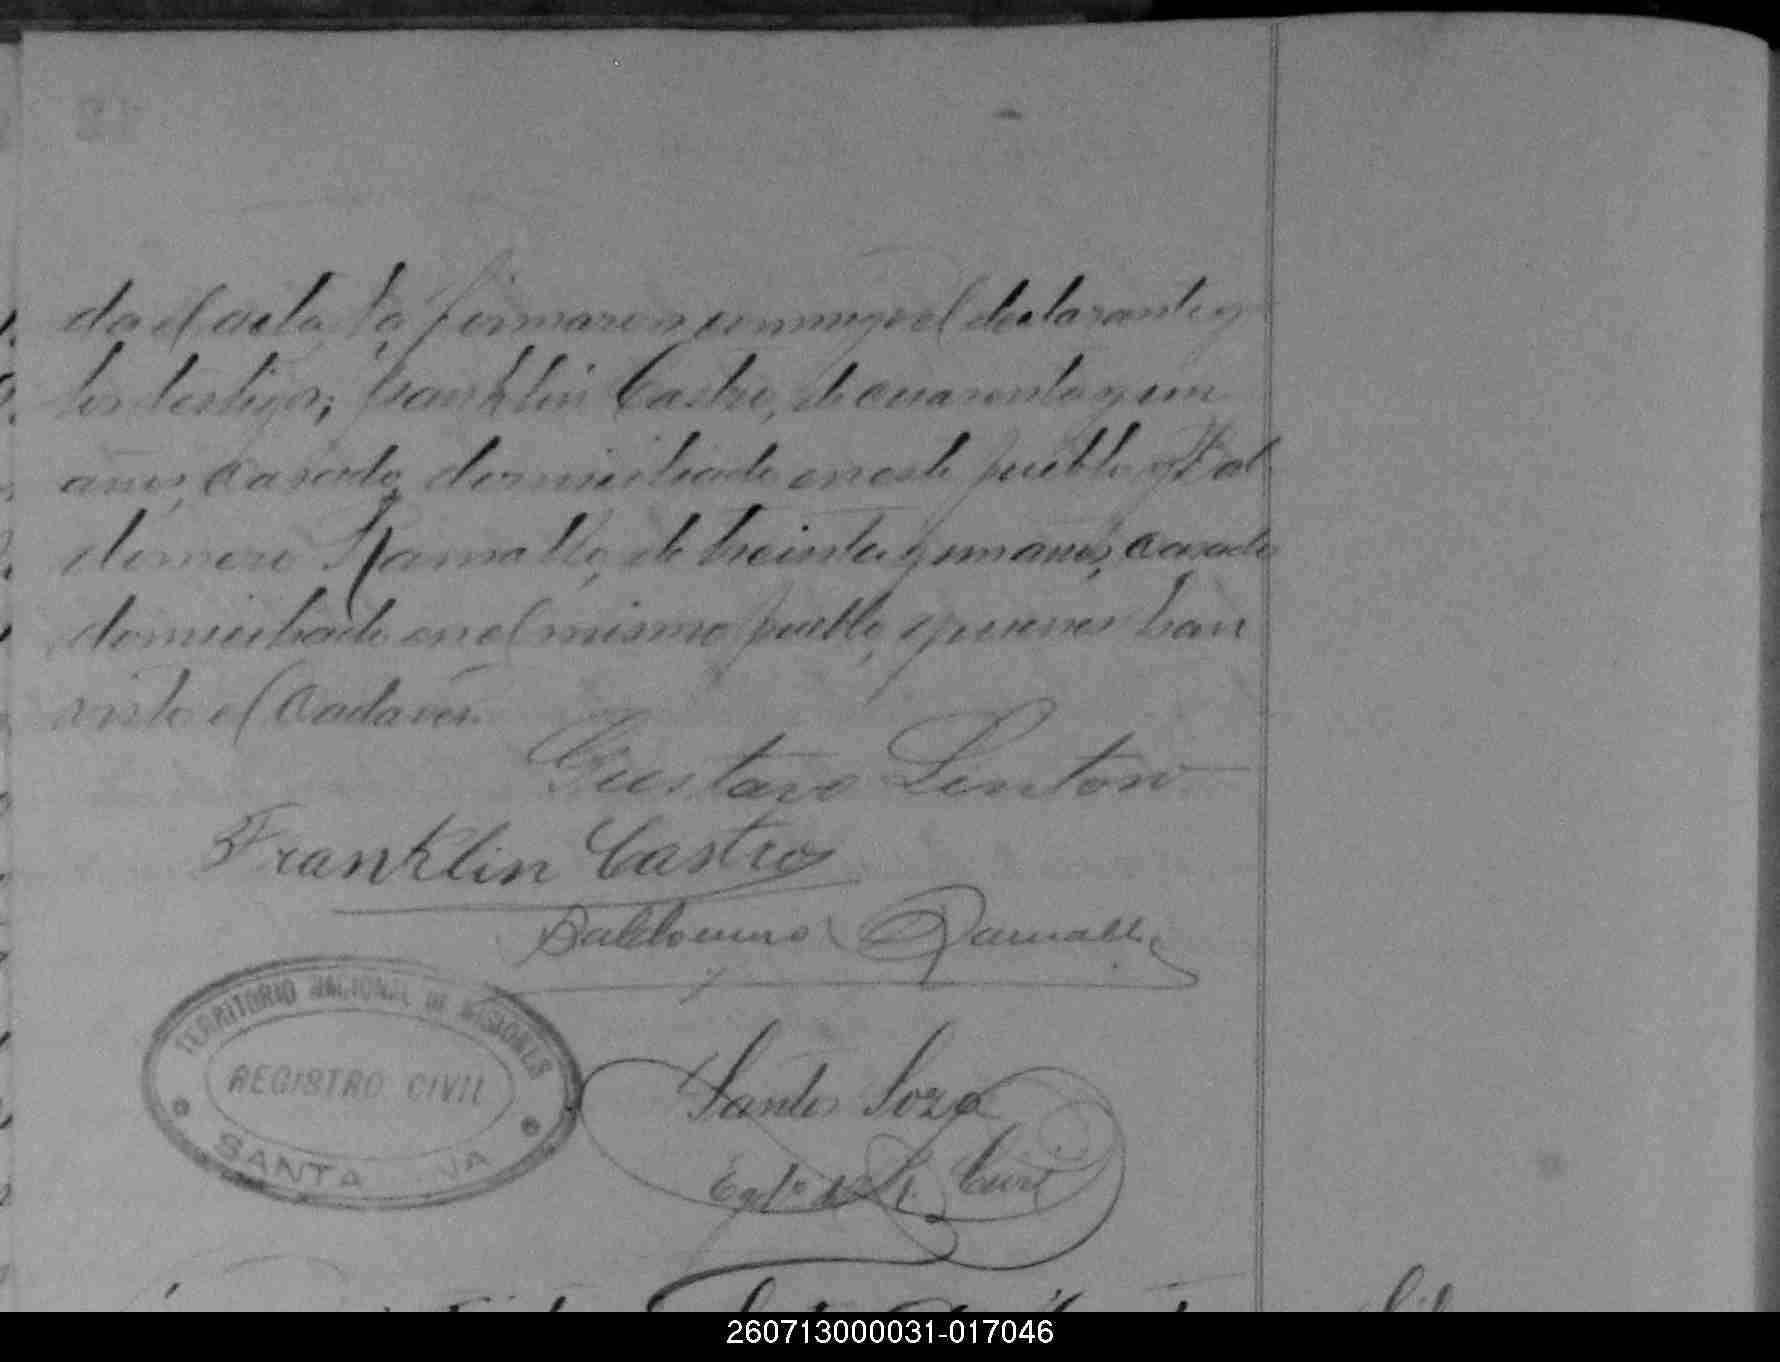 da el acta, la firmaron conmigo el declarante y
los testigos; Franklin Castro, de cuarenta y un
años, casado, domiciliado en este pueblo y Bal
domero Ramallo, de treinta y un años, casado
domiciliado en el mismo pueblo, quienes han
visto el cadaver.
Gustavo Linton
Franklin Castro
Baldomero Ramallo
TERRITORIO NACIONAL DE MISIONES
REGISTRO CIVIL
SANTA NA
Santos Soza
Civil
260713000031-017046